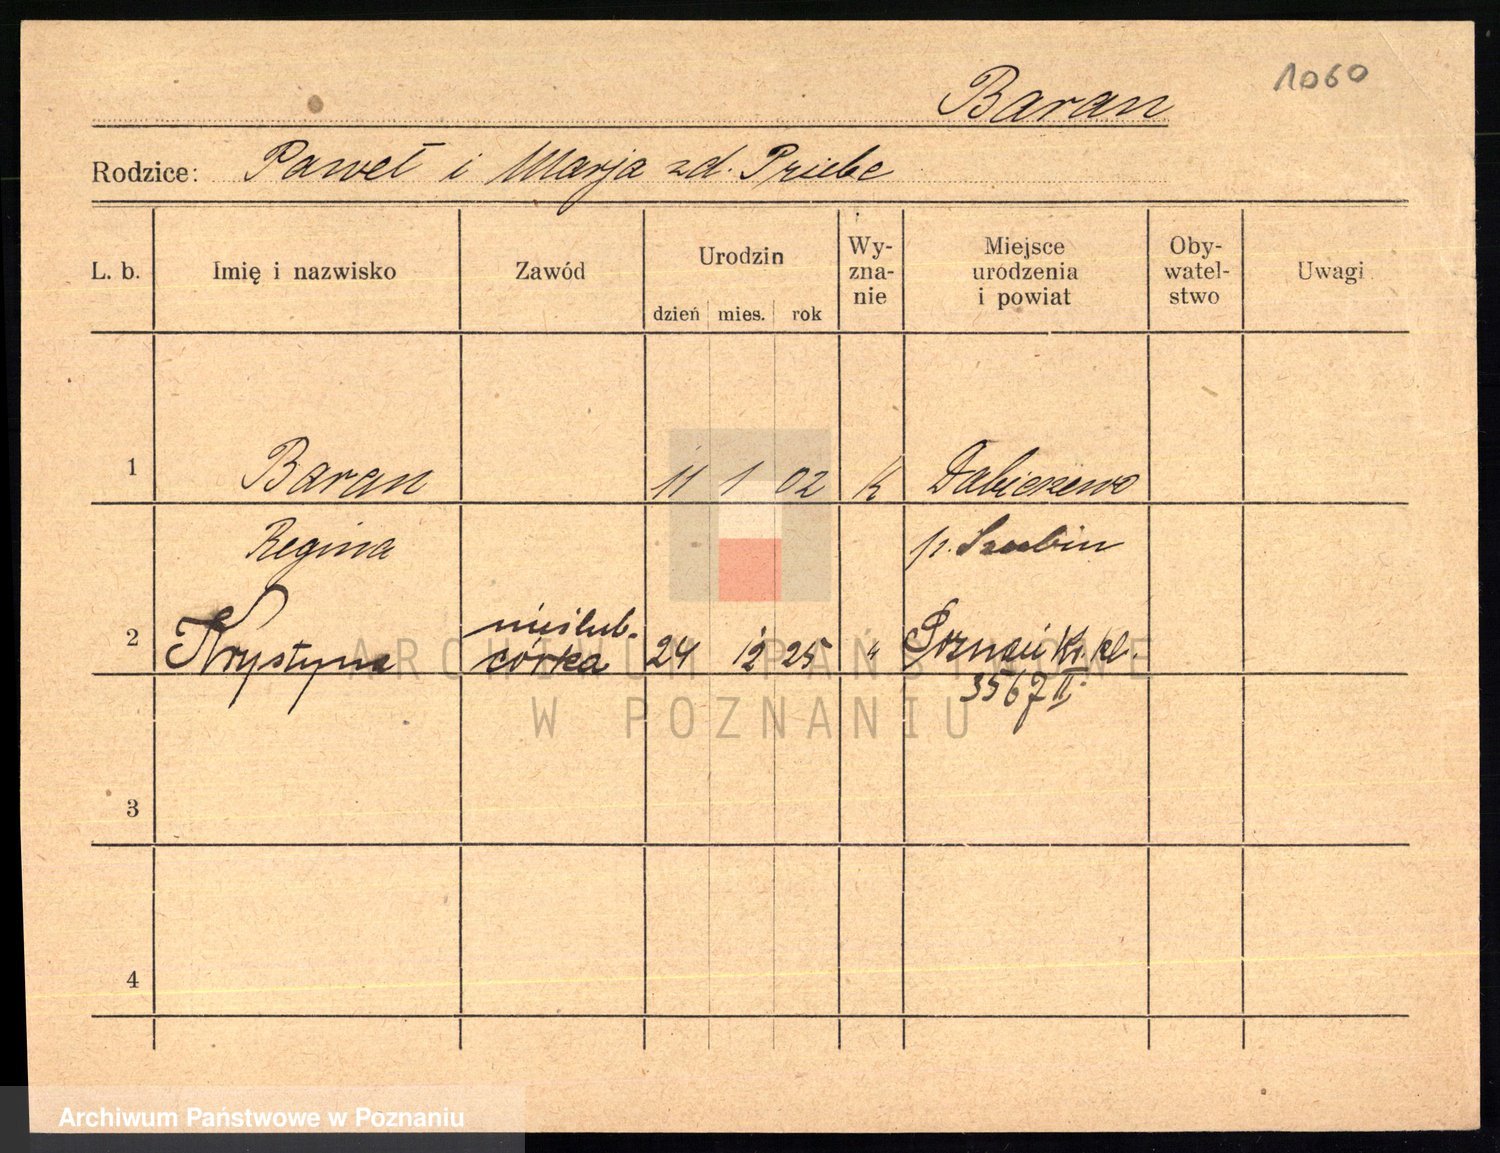 1060
Baran
Rodzice: Paweł i Marja zd. Priebe
L. b. Imię i nazwisko Zawód Urodzin Wy-zna-nie Miejsce urodzenia i powiat Oby-watel-stwo Uwagi
dzień mies. rok
1 Baran 11 1 02 k
Regina p. Szubin
nieślub.
2 Krystyna córka 24 12 25 " Poznań Kr. kl.
3567 II.
3
4
ARCHIWUM PAŃSTWOWE
W POZNANIU
Archiwum Państwowe w Poznaniu